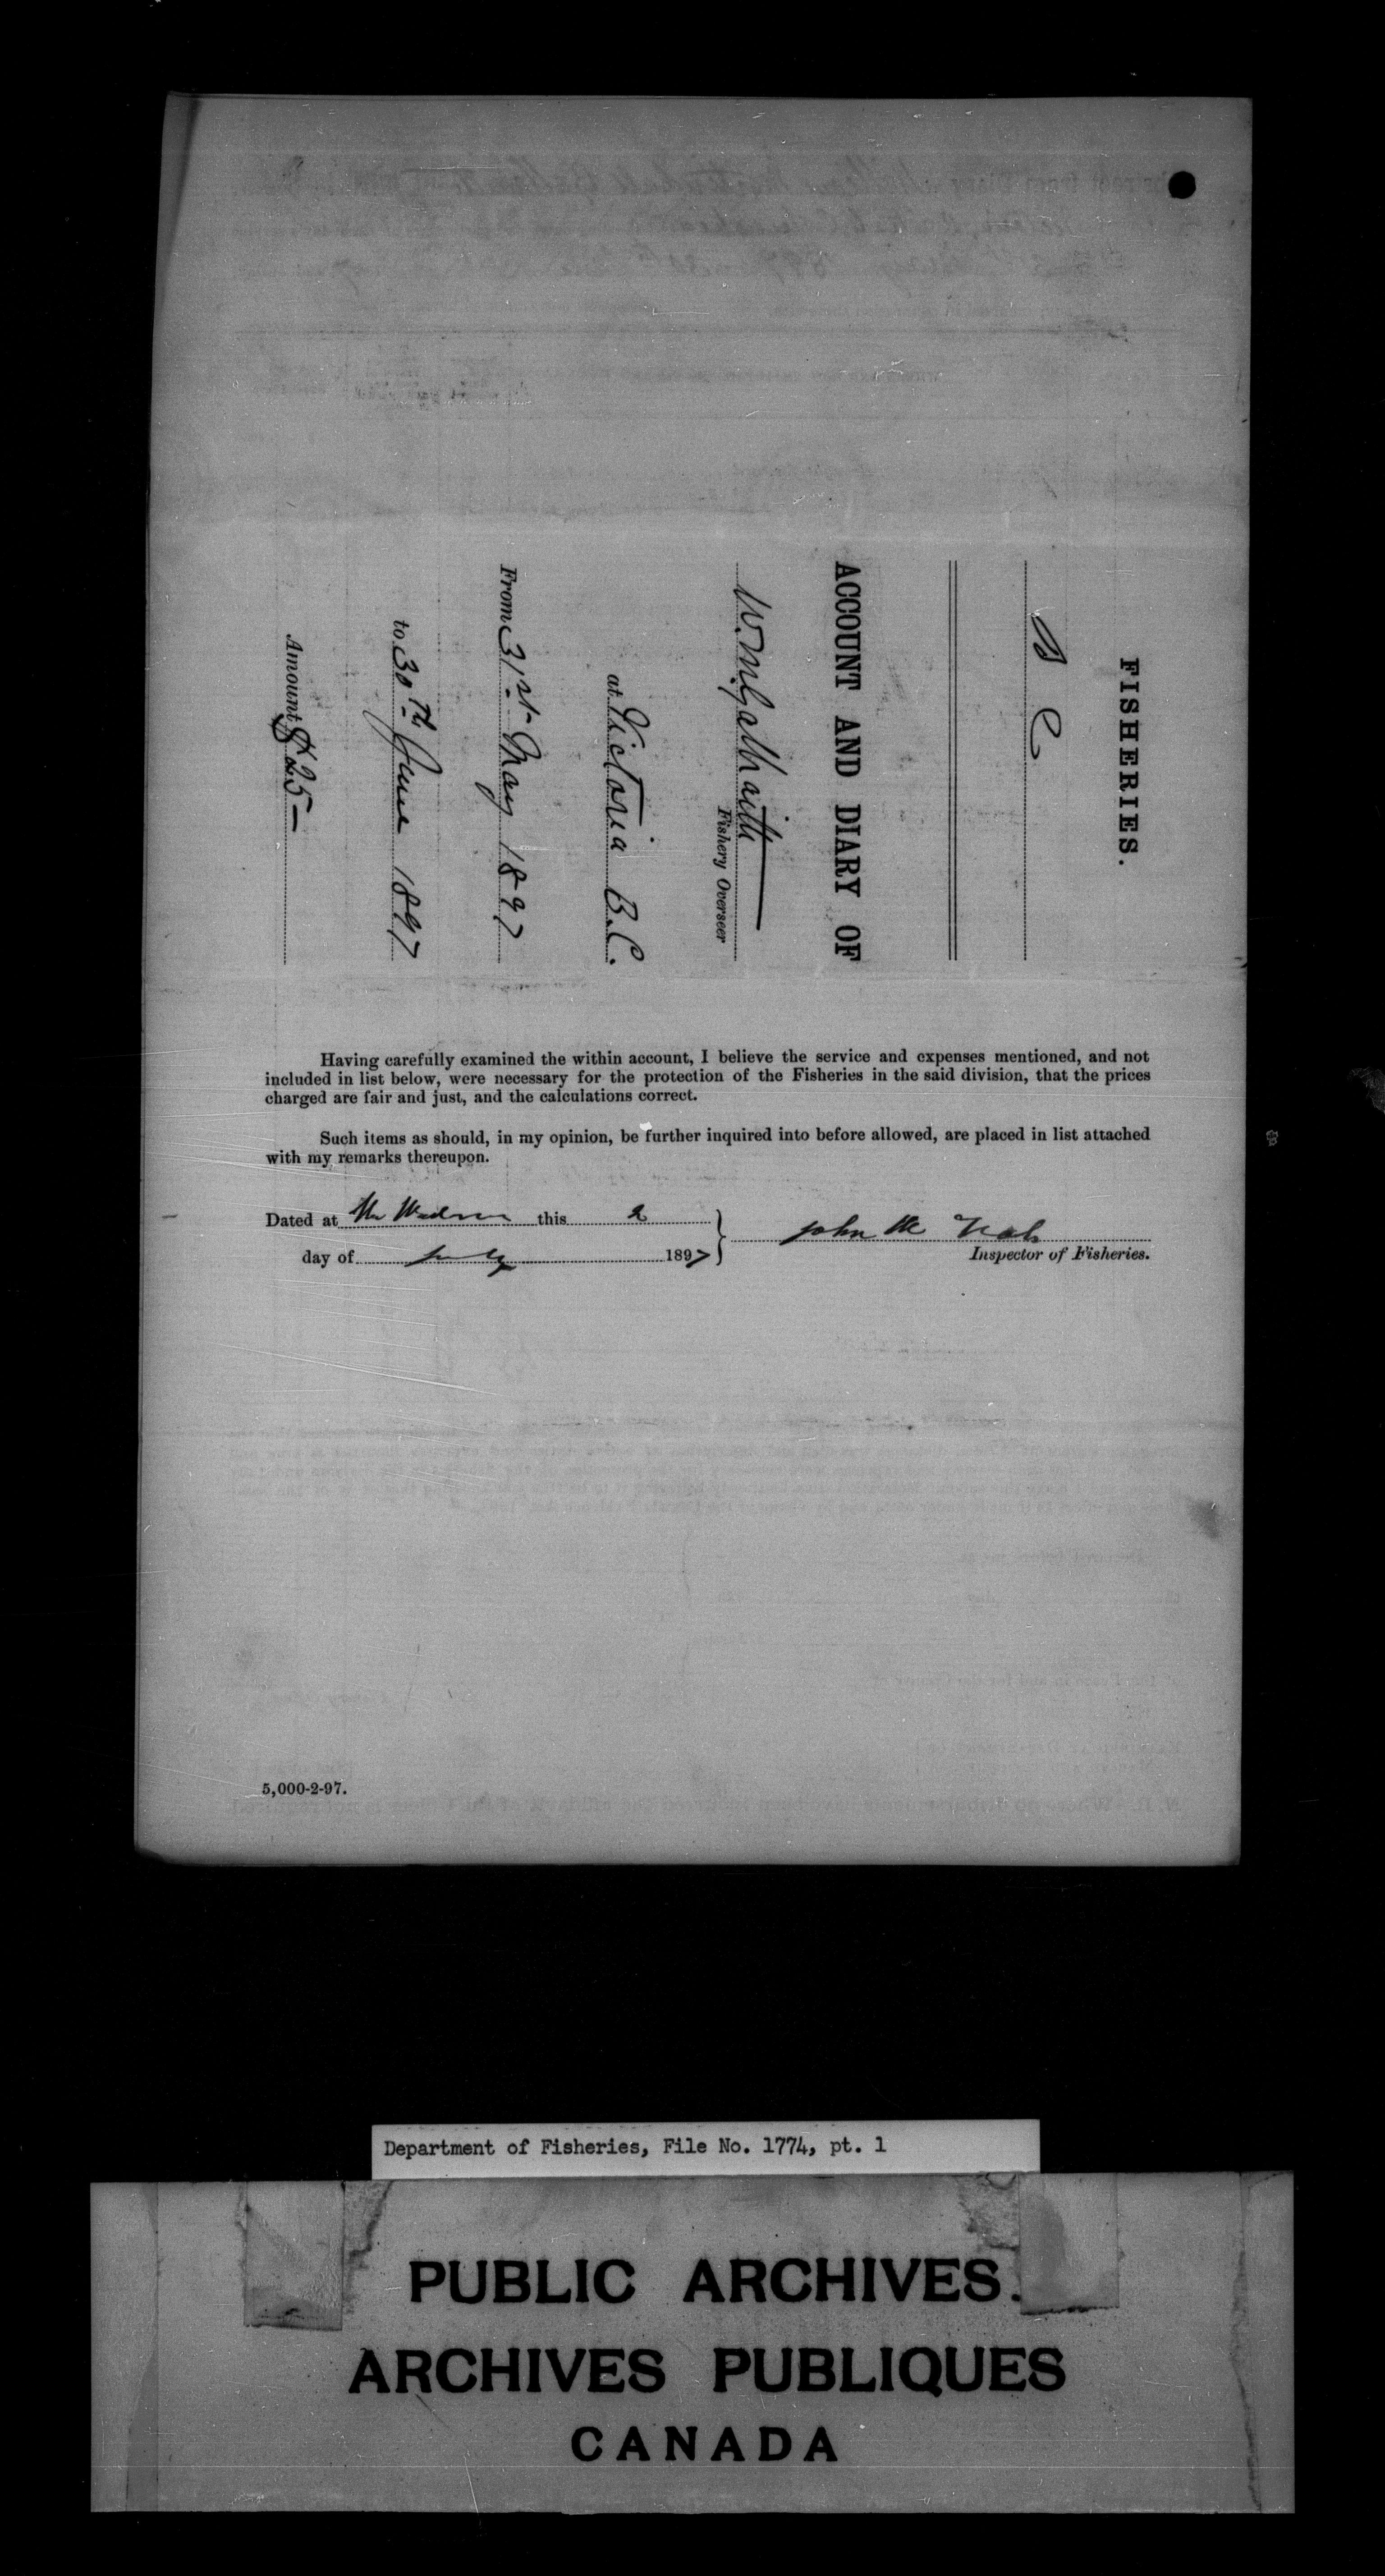 FISHERIES.
B C
ACCOUNT AND DIARY OF
W. M. Galbraith
Fishery Overseer
at Victoria B.C.
From 31st May 1897
to 30th June 1897
Amount $25—
Having carefully examined the within account, I believe the service and expenses mentioned, and not
included in list below, were necessary for the protection of the Fisheries in the said division, that the prices
charged are fair and just, and the calculations correct.
Such items as should, in my opinion, be further inquired into before allowed, are placed in list attached
with my remarks thereupon.
Dated at this 2
day of July 1897
John
Inspector of Fisheries.
5,000-2-97.
Department of Fisheries, File No. 1774, pt. 1
PUBLIC ARCHIVES.
ARCHIVES PUBLIQUES
CANADA